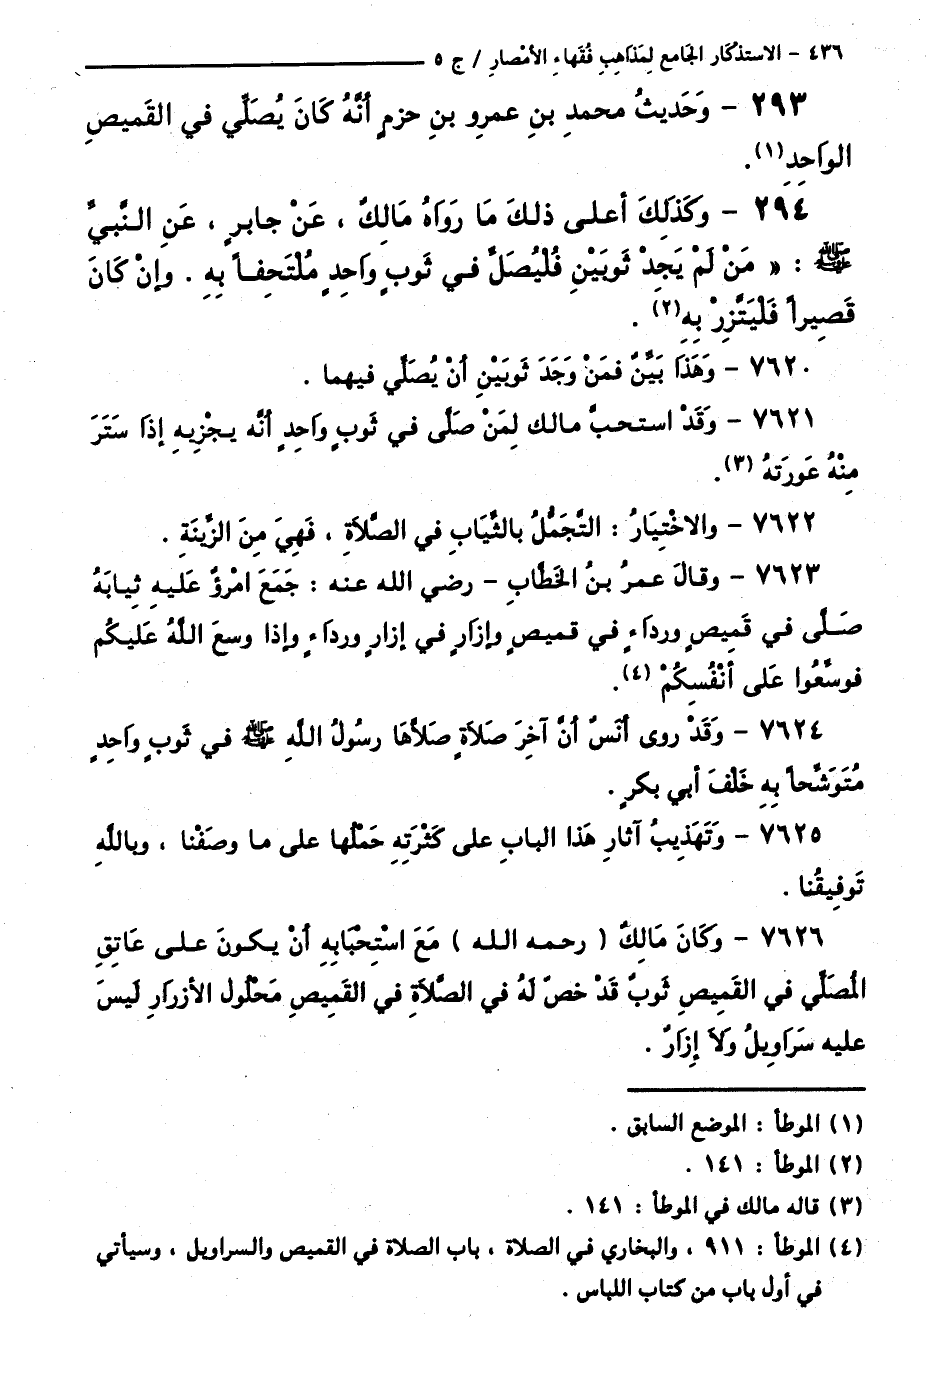 ٤٣٦ - الاستذكار الجَامع لِمَذاهِبِ فُقَهاءِ الأمْصارِ / ج ٥
٢٩٣ - وَحَديثُ محمدِ بنِ عمرو بنِ حزمٍ أنَّهُ كَانَ يُصَلِّي في القَميصِ
الواَحِد(١).
٢٩٤ - وكَذَلِكَ أعلى ذلكَ مَا رَوَاهُ مَالِكٌ ، عَنْ جابرٍ ، عَنِ النَّبيِّ
ﷺ : « مَنْ لَمْ يَجِدْ ثَوبَيْنِ فَلْيُصَلِّ في ثَوبٍ واَحِدٍ مُلْتَحِفاً بِهِ . وإنْ كَانَ
قَصِيراً فَلْيَتَّزِرْ بِهِ(٢) .
٧٦٢٠ - وَهَذَا بَيِّنٌ فمَنْ وَجَدَ ثَوبَيْنِ أنْ يُصَلِّي فيهما .
٧٦٢١ - وَقَدْ استحبَّ مالك لِمَنْ صَلَّى في ثَوبٍ واَحِدٍ أنَّه يجْزِيهِ إذَا سَتَرَ
مِنْهُ عَورَتَهُ (٣).
٧٦٢٢ - والاخْتِيَارُ : التَّجَمُّلُ بالثِّيَابِ في الصَّلاَةِ ، فَهِيَ مِنَ الزِّينَةِ .
٧٦٢٣ - وقالَ عمرُ بنُ الخَطَّابِ - رضي الله عنه : جَمَعَ امْرؤٌ عَليهِ ثِيابَهُ
صَلَّى في قَمِيصٍ ورداَءٍ في قميصٍ وإزاَرٍ في إزارٍ ورداَءٍ وإذا وسعَ اللَّهُ عَليكُم
فوسِّعُوا عَلى أنْفُسِكُمْ (٤).
٧٦٢٤ - وَقَدْ روى أنَسٌ أنَّ آخِرَ صَلاَةٍ صَلاَّهَا رسُولُ اللَّهِ ﷺ في ثَوبٍ واَحِدٍ
مُتَوَشِّحاً بِهِ خَلْفَ أبي بكرٍ .
٧٦٢٥ - وَتَهَذِيبُ آثارِ هَذا البابِ على كَثْرَتِهِ حَمْلُها على ما وصَفْنا ، وباللَّهِ
تَوفِيقُنا .
٧٦٢٦ - وكَانَ مَالِكٌ ( رحمه الله ) مَعَ اسْتِحْبَابِهِ أنْ يكونَ على عَاتِقِ
المُصَلِّي في القَميصِ ثَوبٌ قَدْ خصّ لَهُ في الصَّلاَةِ في القَميصِ مَحْلُولِ الأزرارِ لَيسَ
عليه سَرَاوِيلُ ولاَ إزَارٌ .
(١) الموطأ : الموضع السابق .
(٢) الموطأ : ١٤١ .
(٣) قاله مالك في الموطأ : ١٤١ .
(٤) الموطأ : ٩١١ ، والبخاري في الصلاة ، باب الصلاة في القميص والسراويل ، وسيأتي
في أول باب من كتاب اللباس .